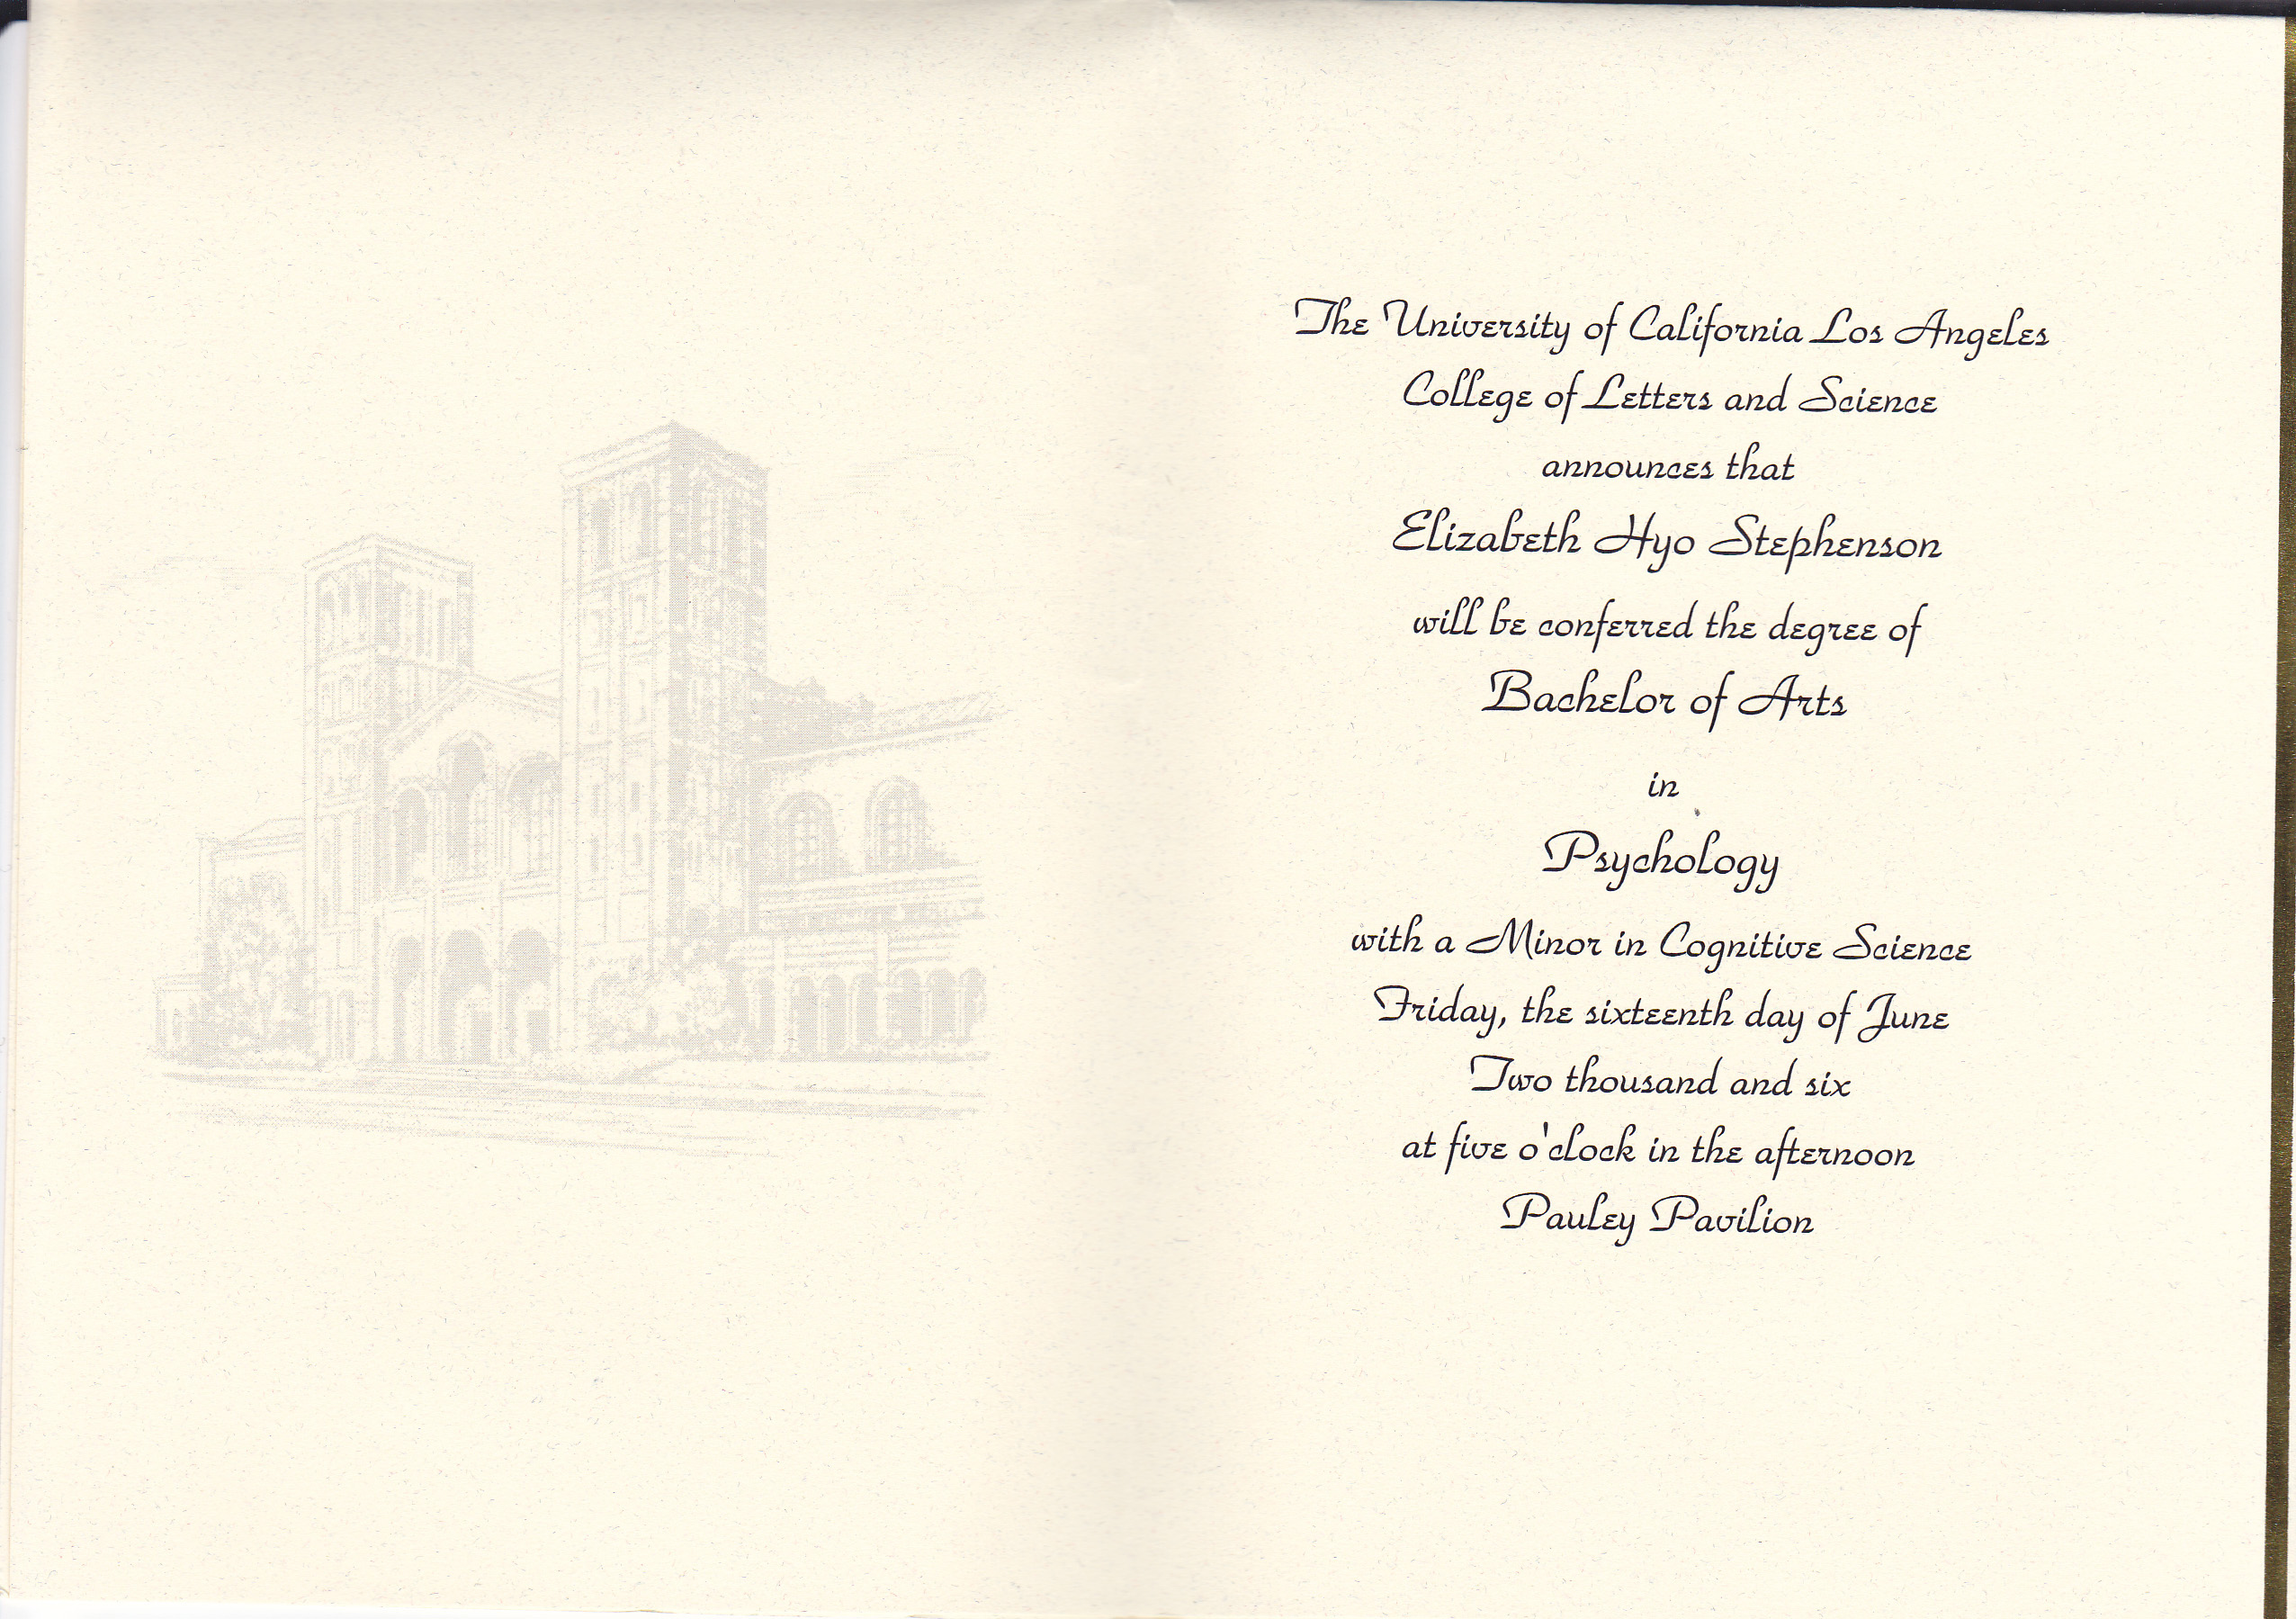 The University of California Los Angeles
College of Letters and Science
announces that
Elizabeth Hyo Stephenson
will be conferred the degree of
Bachelor of Arts
in
Psychology
with a Minor in Cognitive Science
Friday, the sixteenth day of June
Two thousand and six
at five o'clock in the afternoon
Pauley Pavilion